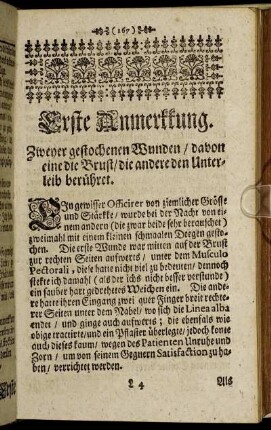 (167)
Erste Anmerkkung.
Zweyer gestochenen Wunden / davon
eine die Brust / die andere den Unter-
leib berühret.
EIn gewisser Officirer von ziemlicher Grösse
und Stärcke / wurde bei der Nacht von ei-
nem andern (die zwar beide sehr berauschet)
zweimahl mit einem kleinen schmaalen Degen gesto-
chen. Die erste Wunde war mitten auf der Brust
zur rechten Seiten aufwerts / unter dem Musculo
Pectorali, diese hatte nicht viel zu bedeuten / dennoch
steckte ich damahl (als der ichs nicht besser verstunde)
ein sauber hart gedrehetes Weichen ein. Die ande-
re hatte ihren Eingang zwei quer Finger breit rechte-
rer Seiten unter dem Nabel / wo sich die Linea alba
endet / und ginge auch aufwerts; die ebenfals wie
obige tractirte / und ein Pflaster überlegte / jedoch konte
auch dieses kaum / wegen des Patienten Unruhe und
Zorn / um von seinem Gegnern Satisfaction zu ha-
ben / verrichtet werden.
L 4
Als